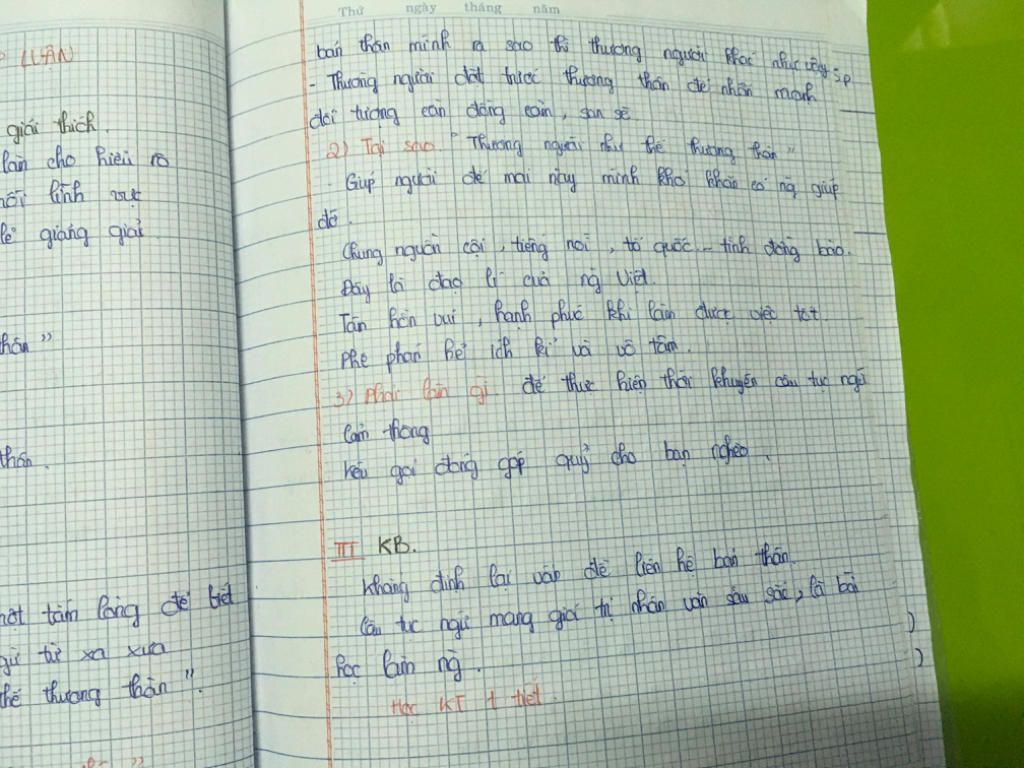 LUẬN
giải thích.
làm cho hiểu rõ
mỗi lĩnh vực
lẽ giảng giải
thân"
thân.
một tấm lòng để biết
ngữ từ xa xưa
thể thương thân".
Thứ ngày tháng năm
bản thân mình ra sao thì thương người khác như vậy
- Thương người đặt trước thương thân để nhấn mạnh
đối tượng cần đồng cảm, san sẻ
2) Tại sao "Thương người như thể thương thân"
- Giúp người để mai này mình khó khăn có ng̀ giúp
đỡ.
Chung nguồn cội, tiếng nói, tổ quốc - tình đồng bào.
Đây là đạo lí của ng̀ Việt.
Tâm hồn vui, hạnh phúc khi làm được việc tốt
Phê phán kẻ ích kỉ và vô tâm.
3) Phải làm gì để thực hiện lời khuyên câu tục ngữ
Cảm thông
Kêu gọi đóng góp quỹ cho bạn nghèo.
III KB.
Khẳng định lại vấn đề liên hệ bản thân.
Câu tục ngữ mang giá trị nhân văn sâu sắc, là bài
học làm ng̀.
Học KT 1 tiết.